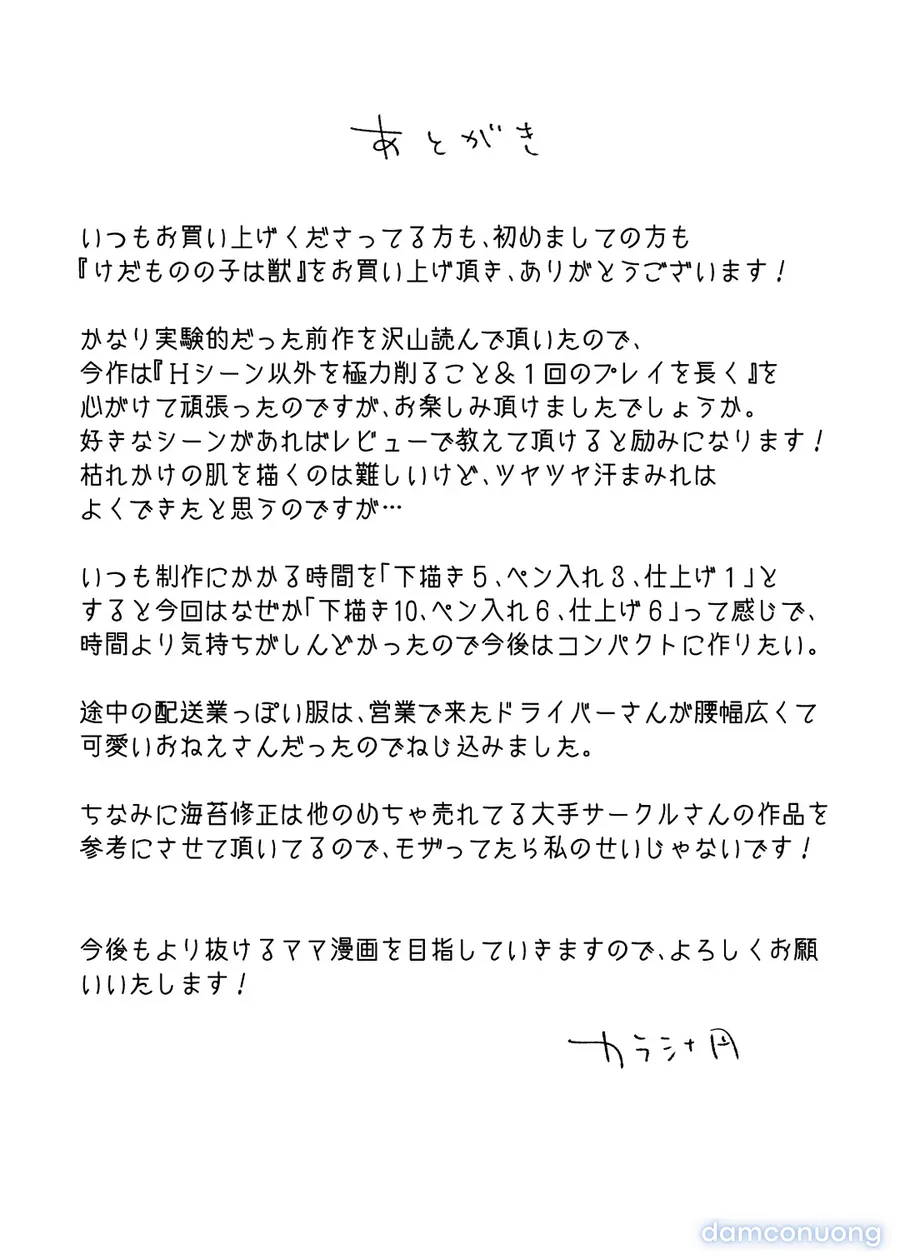 あとがき
いつもお買い上げくださってる方も、初めましての方も
『けだものの子は獣』をお買い上げ頂き、ありがとうございます！
かなり実験的だった前作を沢山読んで頂いたので、
今作は『Hシーン以外を極力削ること＆１回のプレイを長く』を
心がけて頑張ったのですが、お楽しみ頂けましたでしょうか。
好きなシーンがあればレビューで教えて頂けると励みになります！
枯れかけの肌を描くのは難しいけど、ツヤツヤ汗まみれは
よくできたと思うのですが…
いつも制作にかかる時間を「下描き５、ペン入れ３、仕上げ１」と
すると今回はなぜか「下描き10、ペン入れ６、仕上げ６」って感じで、
時間より気持ちがしんどかったので今後はコンパクトに作りたい。
途中の配送業っぽい服は、営業で来たドライバーさんが腰幅広くて
可愛いおねえさんだったのでねじ込みました。
ちなみに海苔修正は他のめちゃ売れてる大手サークルさんの作品を
参考にさせて頂いてるので、モザってたら私のせいじゃないです！
今後もより抜けるママ漫画を目指していきますので、よろしくお願
いいたします！
カラシナ円
damconuong